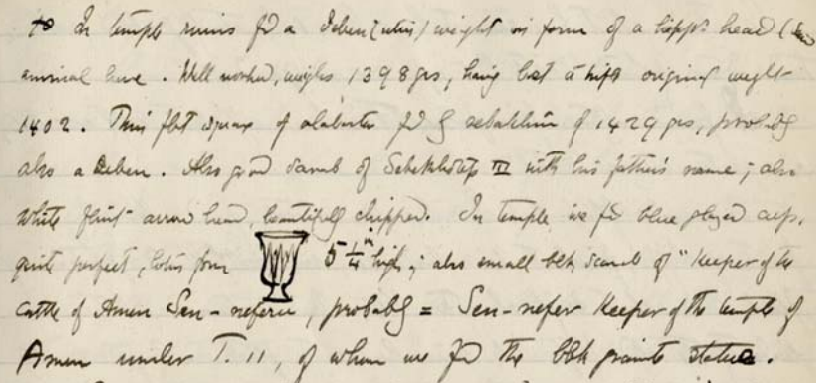 In temple ruins fd a Deben (uten) weight in form of a hippo's head (
animal here. Well worked, weighs 1398 grs, having lost a trifle original weight
1402. Thin flat square of alabaster fd of 1429 grs, probably
also a Deben. Also good scarab of Sebekhotep III with his father's name; also
white flint arrow head, beautifully chipped. In temple we fd blue glazed cup,
quite perfect, lotus form 5 1/4 in high; also small blk scarab of "Keeper of the
cattle of Amen Sen-neferu, probably = Sen-nefer Keeper of the temple of
Amen under T. II, of whom we fd the blk granite statue.